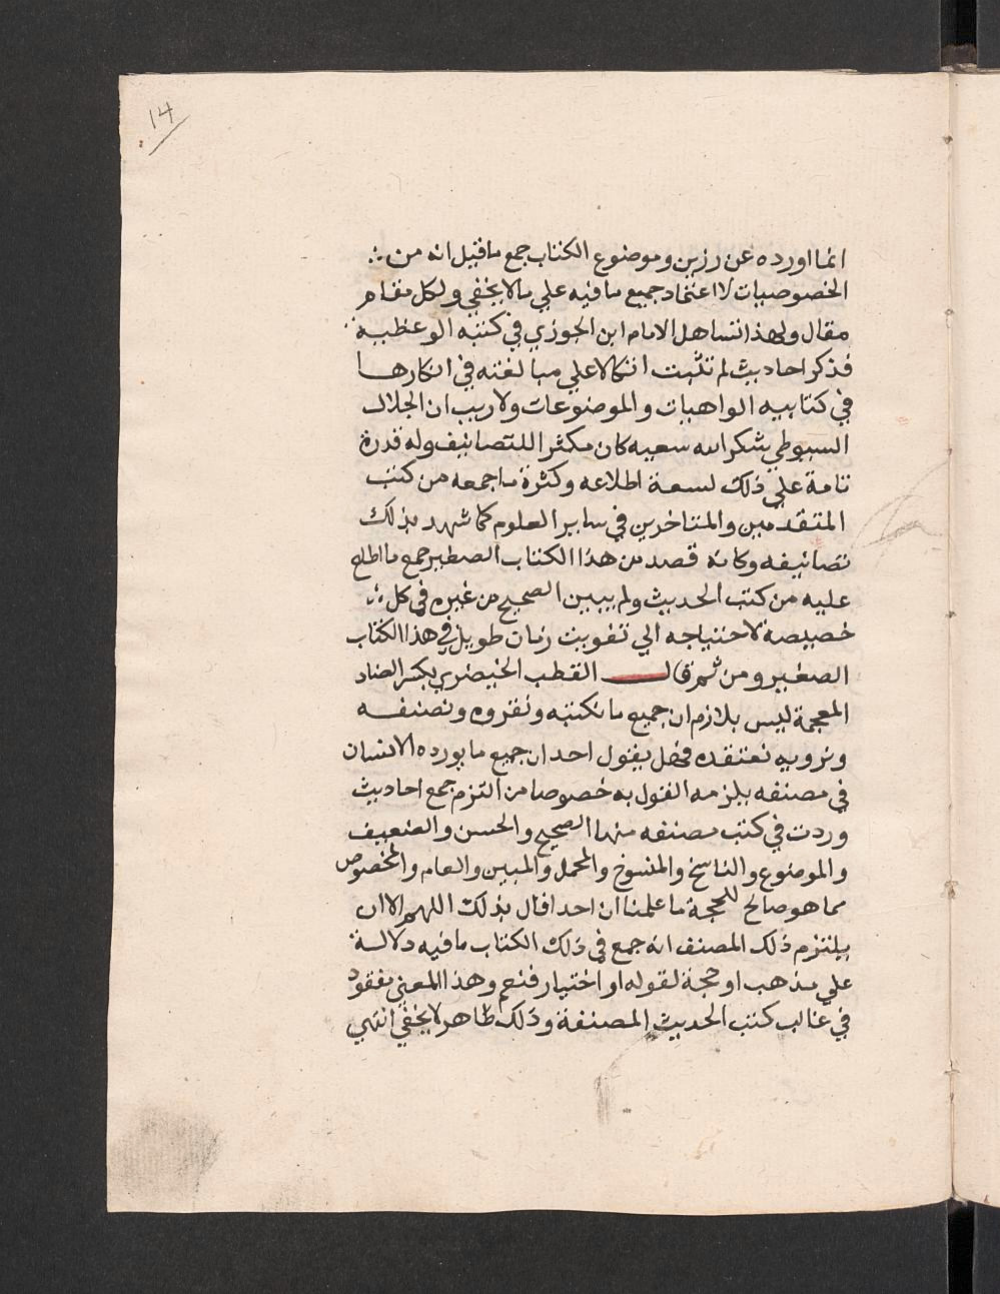 14
انما اورده عن رزين وموضوع الكتاب جمع ما قيل انه من
الخصوصيات لا اعتماد جميع ما فيه علي ما لا يخفي ولكل مقام
مقال ولهذا تساهل الامام ابن الجوزي في كتبه الوعظية
فذكر احاديث لم تثبت اتكالا علي مبالغته في انكارها
في كتابيه الواهيات والموضوعات ولا ريب ان الجلال
السيوطي شكر الله سعيه كان مكثرا للتصانيف وله قدرة
تامة علي ذلك لسعة اطلاعه وكثرة ما جمعه من كتب
المتقدمين والمتاخرين في ساير العلوم كما شهد بذلك
تصانيفه وكانه قصد من هذا الكتاب الصغير جمع ما اطلع
عليه من كتب الحديث ولم يبين الصحيح من غيره في كل
خصيصة لاحتياجه الي تفويت زمان طويل في هذا الكتاب
الصغير ومن ثم قال القطب الخيضري بكسر الضاد
المعجمة ليس بلازم ان جميع ما نكتبه ونقروه ونصنفه
ونرويه نعتقده فهل يقول احد ان جميع ما يورده الانسان
في مصنفه يلزمه القول به خصوصا من التزم جمع احاديث
وردت في كتب مصنفه منها الصحيح والحسن والضعيف
والموضوع والناسخ والمنسوخ والمجمل والمبين والعام والمخصوص
مما هو صالح للحجة ما علمنا ان احدا قال بذلك اللهم الا ان
يلتزم ذلك المصنف انه جمع في ذلك الكتاب ما فيه دلالة
علي مذهب او حجة لقوله او اختيار فنعم وهذا المعني مفقود
في غالب كتب الحديث المصنفة وذلك ظاهر لا يخفي انتهي